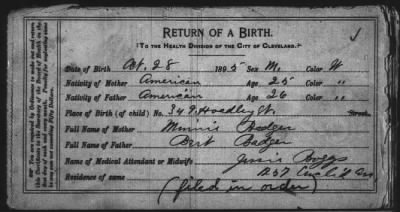 RETURN OF A BIRTH.
(TO THE HEALTH DIVISION OF THE CITY OF CLEVELAND.)
Date of Birth Oct. 28 1895 Sex M. Color W
Nativity of Mother American Age 25 Color "
Nativity of Father American Age 26 Color "
Place of Birth (of child) No. 349 Hoadley St. Street.
Full Name of Mother Minnie Badger
Full Name of Father Bert Badger
Name of Medical Attendant or Midwife Jessie Boggs
Residence of same 1257 Euclid Ave
(filed in order)